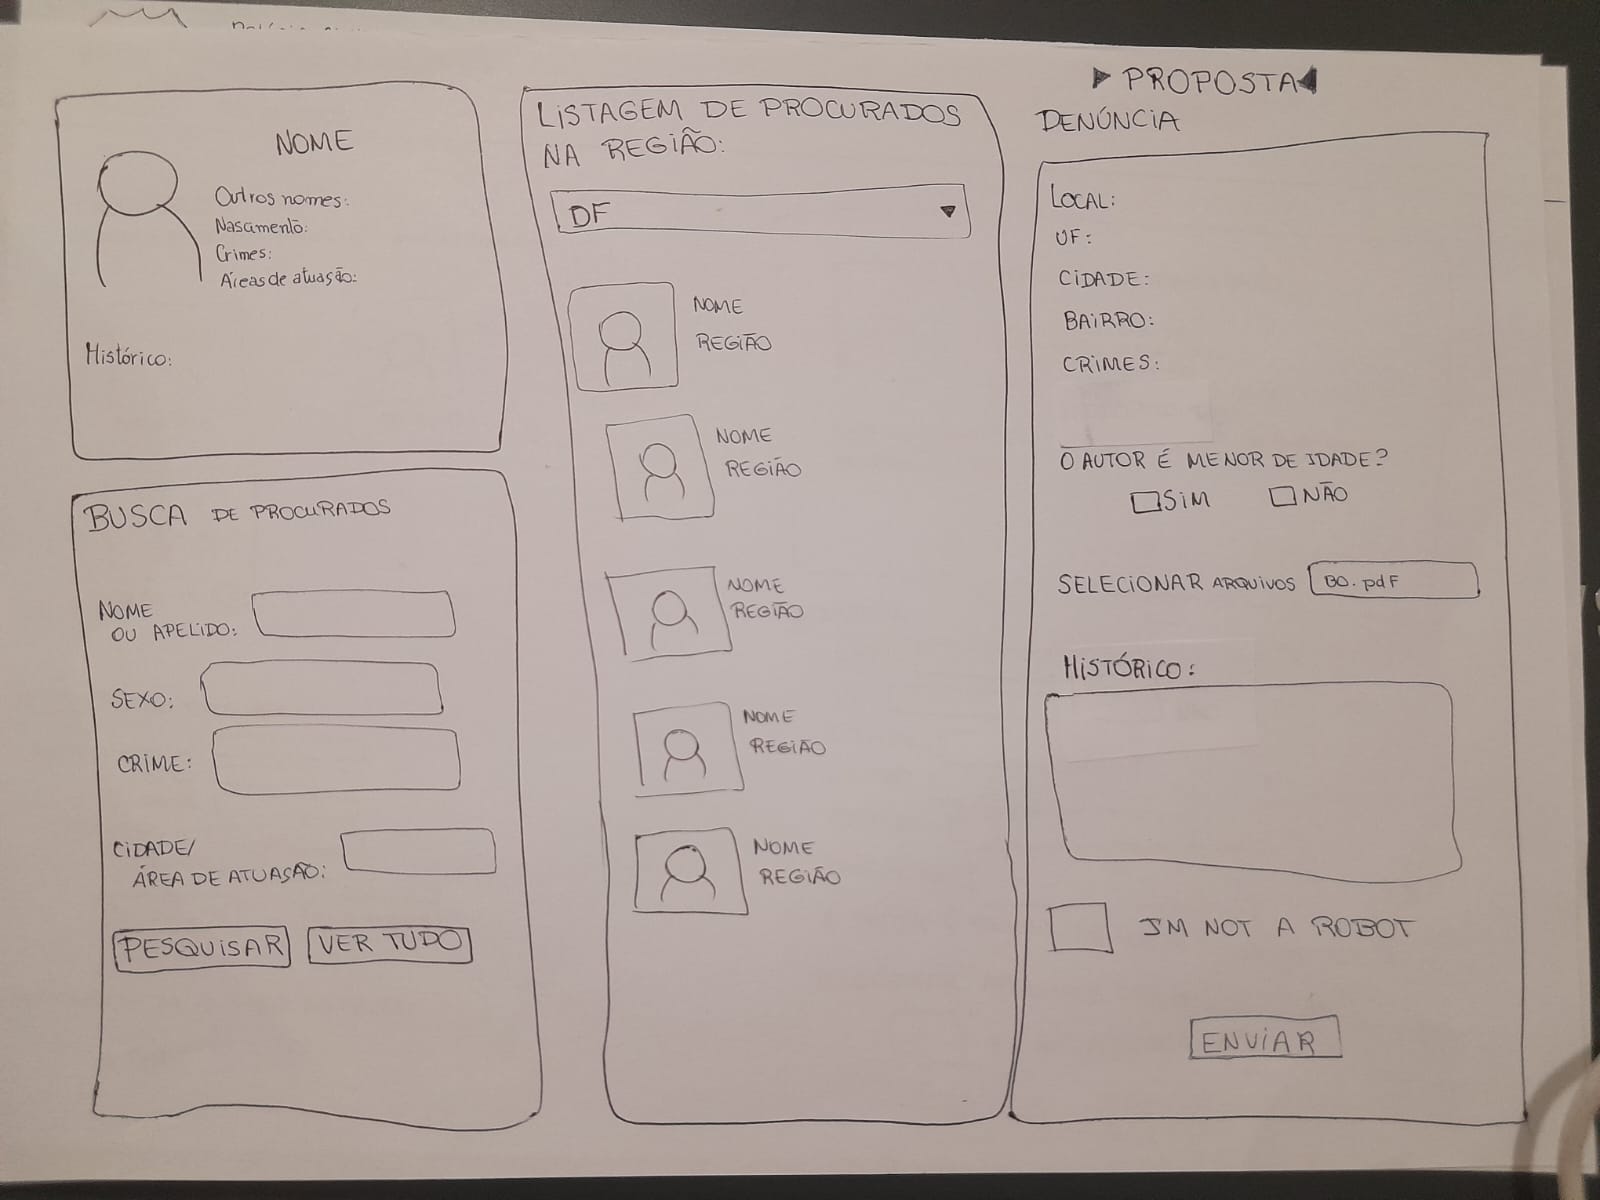 NOME
Outros nomes:
Nascimento:
Crimes:
Áreas de atuação:
Histórico:
BUSCA DE PROCURADOS
NOME
OU APELIDO:
SEXO:
CRIME:
CIDADE/
ÁREA DE ATUAÇÃO:
PESQUISAR VER TUDO
LISTAGEM DE PROCURADOS
NA REGIÃO:
DF
NOME
REGIÃO
NOME
REGIÃO
NOME
REGIÃO
NOME
REGIÃO
NOME
REGIÃO
PROPOSTA
DENÚNCIA
LOCAL:
UF:
CIDADE:
BAIRRO:
CRIMES:
O AUTOR É MENOR DE IDADE?
SIM NÃO
SELECIONAR ARQUIVOS BO.pdF
HISTÓRICO:
IM NOT A ROBOT
ENVIAR